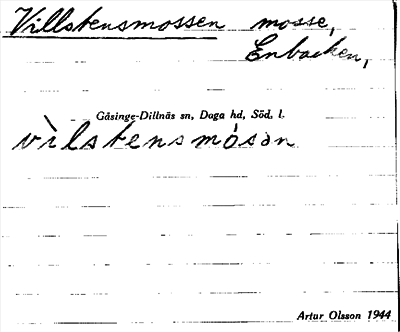 Villstensmossen mosse,
Enbacken,
Gåsinge-Dillnäs sn, Daga hd, Söd. l.
vìlstensmósən
Artur Olsson 1944